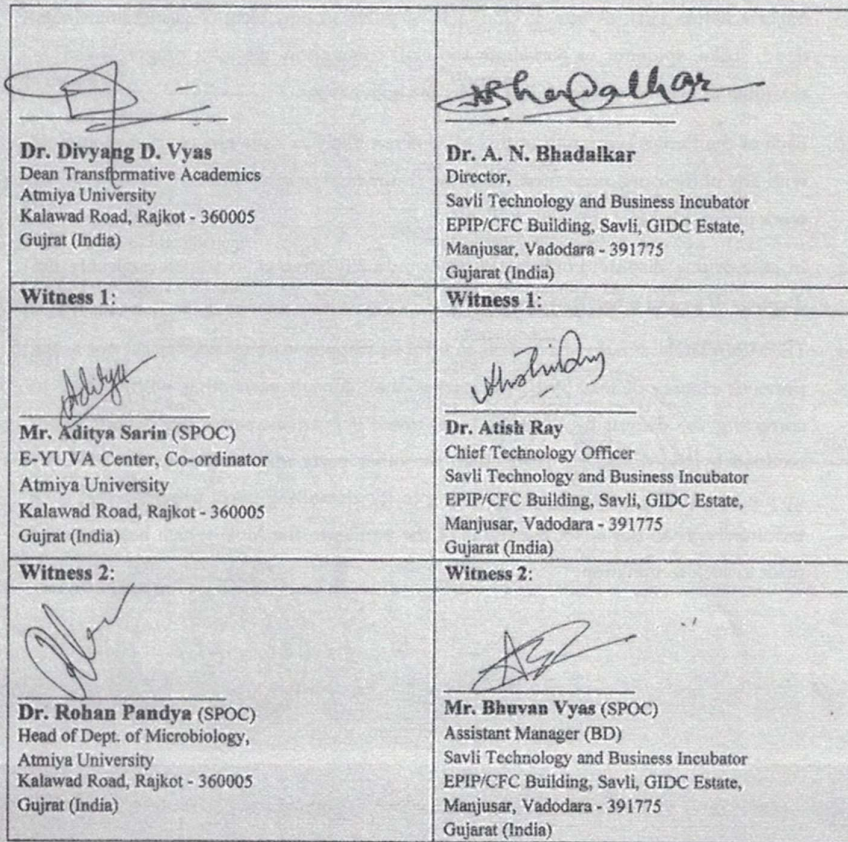 Dr. Divyang D. Vyas
Dean Transformative Academics
Atmiya University
Kalawad Road, Rajkot - 360005
Gujrat (India)
ABhadalkar
Dr. A. N. Bhadalkar
Director,
Savli Technology and Business Incubator
EPIP/CFC Building, Savli, GIDC Estate,
Manjusar, Vadodara - 391775
Gujarat (India)
Witness 1:
Witness 1:
Aditya
Mr. Aditya Sarin (SPOC)
E-YUVA Center, Co-ordinator
Atmiya University
Kalawad Road, Rajkot - 360005
Gujrat (India)
Dr. Atish Ray
Chief Technology Officer
Savli Technology and Business Incubator
EPIP/CFC Building, Savli, GIDC Estate,
Manjusar, Vadodara - 391775
Gujarat (India)
Witness 2:
Witness 2:
Dr. Rohan Pandya (SPOC)
Head of Dept. of Microbiology,
Atmiya University
Kalawad Road, Rajkot - 360005
Gujrat (India)
Mr. Bhuvan Vyas (SPOC)
Assistant Manager (BD)
Savli Technology and Business Incubator
EPIP/CFC Building, Savli, GIDC Estate,
Manjusar, Vadodara - 391775
Gujarat (India)